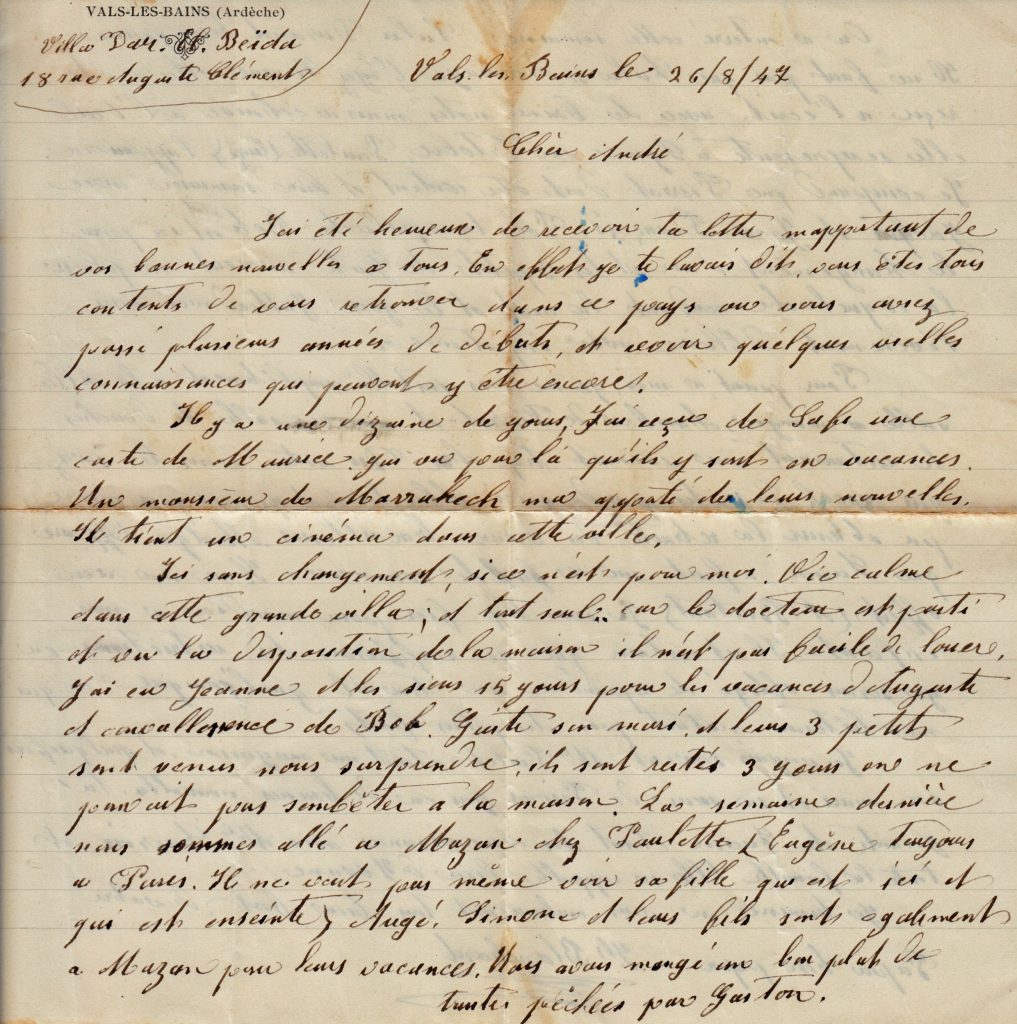 VALS-LES-BAINS (Ardèche)
Villa Dar. El. Beïda
18 rue Auguste Clément
Vals. les. Bains le 26/8/47
Chèr André
J'ai été heureux de recevoir ta lettre m'apportant de
vos bonnes nouvelles a tous. En effet je te lavais dit, vous êtes tous
contents de vous retrouver dans ce pays ou vous avez
passé plusieurs années de débuts, et revoir quélques vielles
connaissances qui peuvent y être encore.
Il y a une dizaine de yours, J'ai reçu de Safi une
carte de Maurice. qui ou par là qu'ils y sont en vacances.
Un monsieur de Marrakech ma apporté de leurs nouvelles.
Il tient un cinéma dans cette ville.
Ici sans changement, si ce n'est pour moi. Vie calme
dans cette grande villa; et tout seul.. car le docteur est parti
et vu la disposition de la maison il n'ést pas facile de louer.
J'ai eu Jeanne et les siens 15 yours pour les vacances d'Auguste
et convallesence de Bob. Guiste son mari. et leurs 3 petits
sont venus nous surprendre. ils sont restés 3 yours on ne
pouvait pas sembêter a la maison. La semaine dernière
nous sommes allé a Mazan chez Paulette (Eugène toujours
a Paris. Il ne veut pas même voir sa fille qui est ici et
qui est enseinte) Augé. Simone et leurs fils sont également
a Mazan pour leurs vacances. Nous avons mangé un bon plat de
truites pêchées par Gaston.